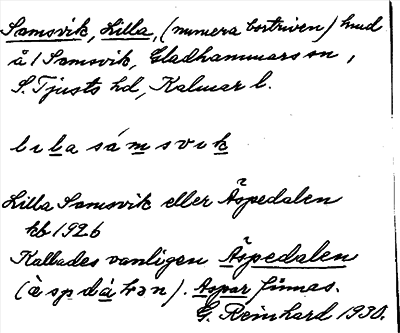 Samsvik, Lilla, (numera bortriven) hmd
å 1 Samsvik, Gladhammars sn,
S. Tjusts hd, Kalmar l.
lıla sámsvık
Lilla Samsvik eller Äspedalen
kb 1926
Kallades vanligen Äspedalen
(àspdàən). Aspar finnas.
G. Reinhard 1930.